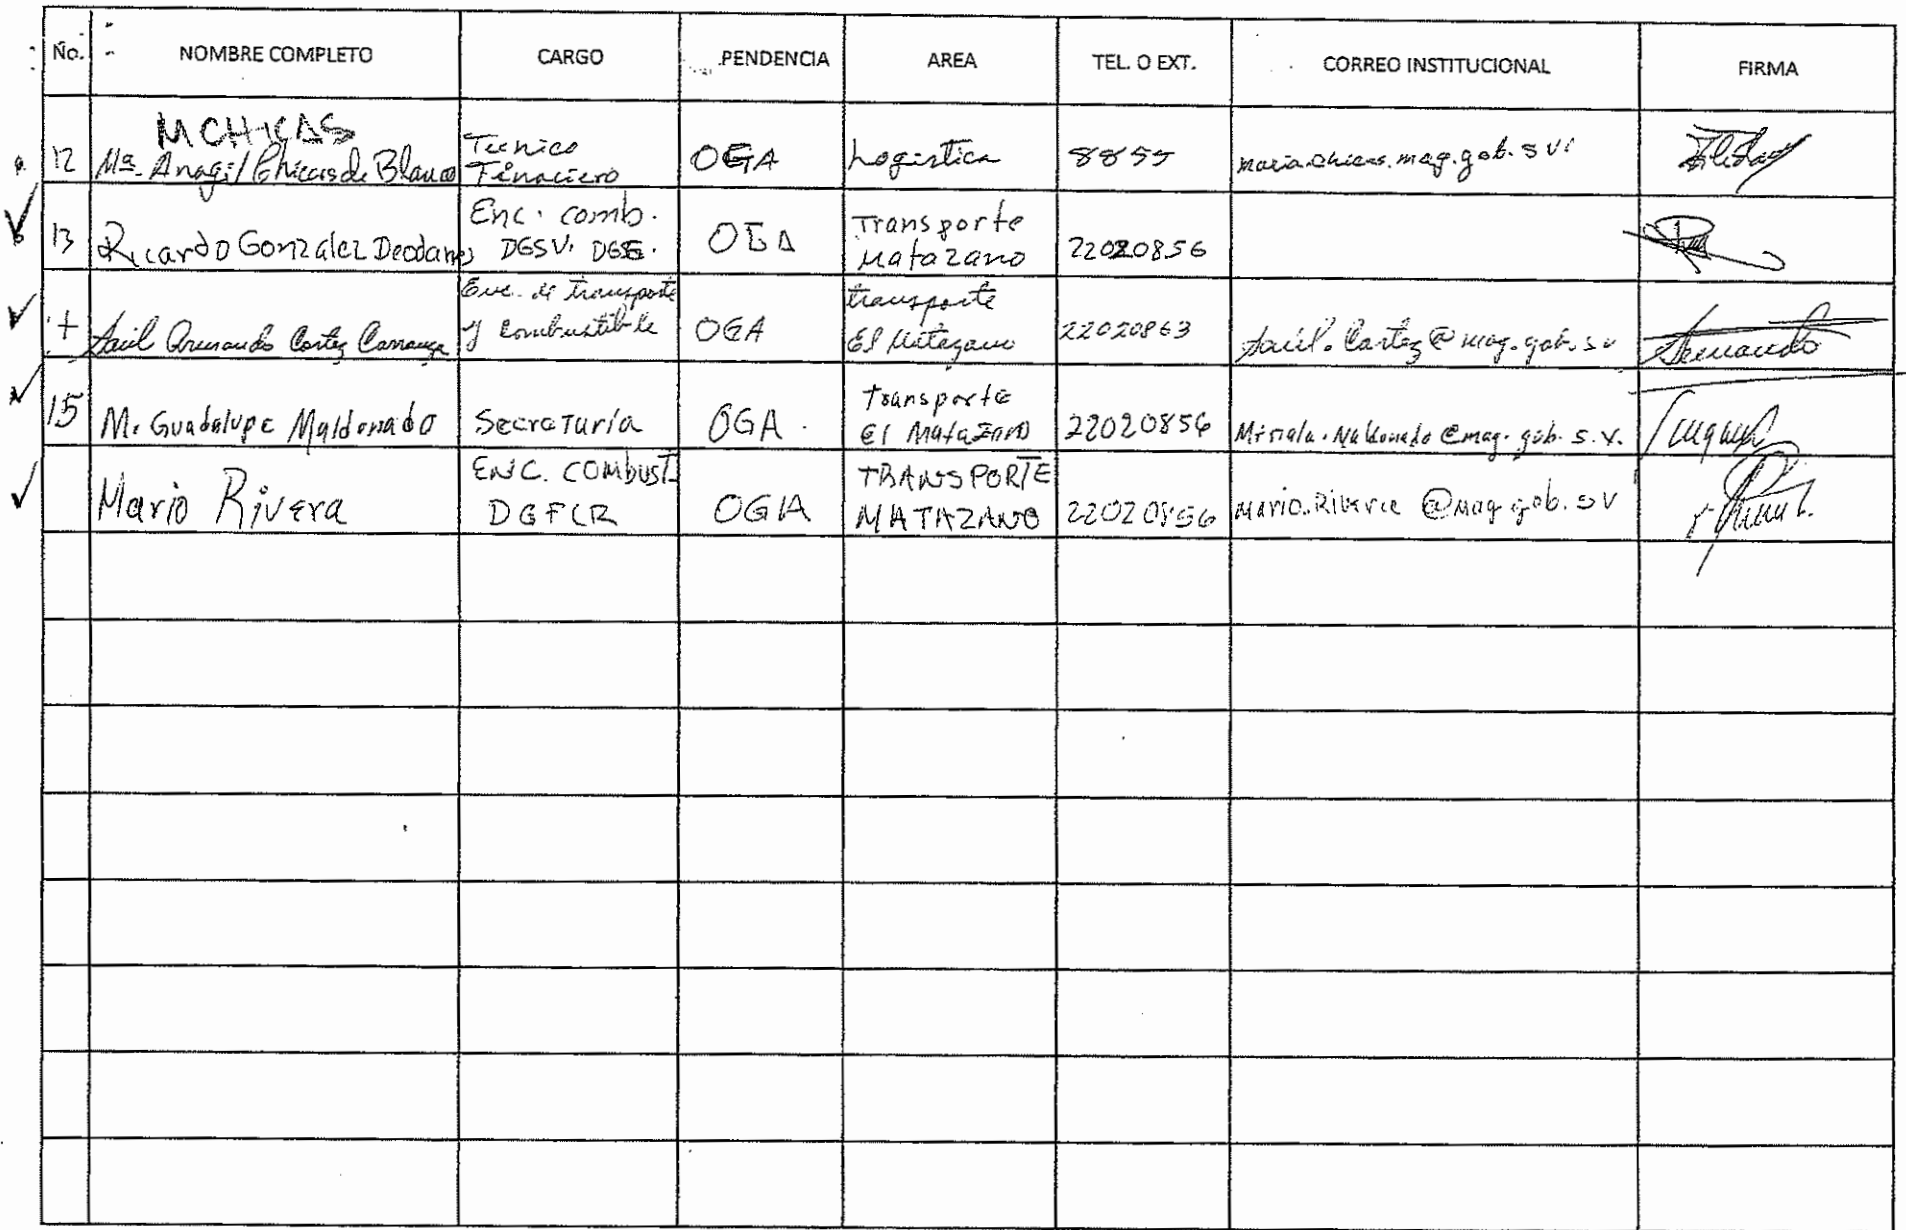 No. NOMBRE COMPLETO CARGO PENDENCIA AREA TEL. O EXT. CORREO INSTITUCIONAL FIRMA
MCHICAS
12 Mª. Anagil Chicas de Blanco Tecnico Finaciero OGA Logistica 8855 maria.chicas.mag.gob.sv
13 Ricardo Gonzalez Deodanes Enc. comb. DGSV. DGG. OGA Transporte Matazano 22020856
Saúl Armando Cortez Carranza Enc. de transporte y combustible OGA transporte El Matazano 22020863 Saúl.Cortez@mag.gob.sv Armando
15 M. Guadalupe Maldonado Secreturía OGA. Transporte El Matazano 22020856 Maldonado@mag.gob.s.v.
Mario Rivera ENC. COMBUST. DGFCR OGA TRANSPORTE MATAZANO 22020856 Mario.Rivera@mag.gob.sv